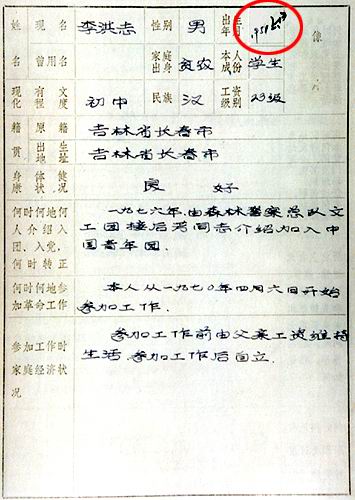 姓 现名 李洪志 性别 男 出生年月 像
名 曾用名 家庭出身 贫农 本人成份 学生
现化 有程 文度 初中 民族 汉 工资级别 23级
籍 原籍 吉林省长春市
贯 出生地址 吉林省长春市
身体健康状况 良好
何时何地何 一九七六年,由森林警察总队文
人介绍入 工团 同志介绍加入中
团、入党, 国青年团.
何时转正
何时何地参 本人从一九七〇年四月六日开始
加革命工作 参加工作.
参加工作时 参加工作前由父亲工资维持
家庭经济状 生活.参加工作后自立.
况